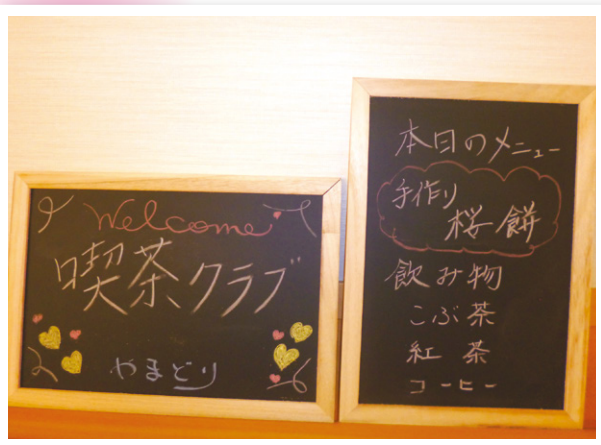 Welcome
喫茶クラブ
やまどり
本日のメニュー
手作り
桜餅
飲み物
こぶ茶
紅茶
コーヒー